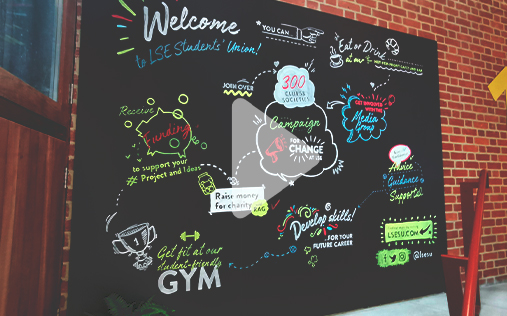 Welcome
to LSE Students' Union!
YOU CAN
Eat or Drink
at our
JOIN OVER
300
CLUBS &
SOCIETIES
GET INVOLVED
WITH THE
Media
Group
Receive
Funding
to support your
# Project and Ideas
Campaign
FOR
CHANGE
AT LSE
Advice
Guidance
Support
Raise money
for charity
RAG
Develop skills!
FOR YOUR
FUTURE CAREER
Get fit at our
student-friendly
GYM
LSESU.COM
@lsesu